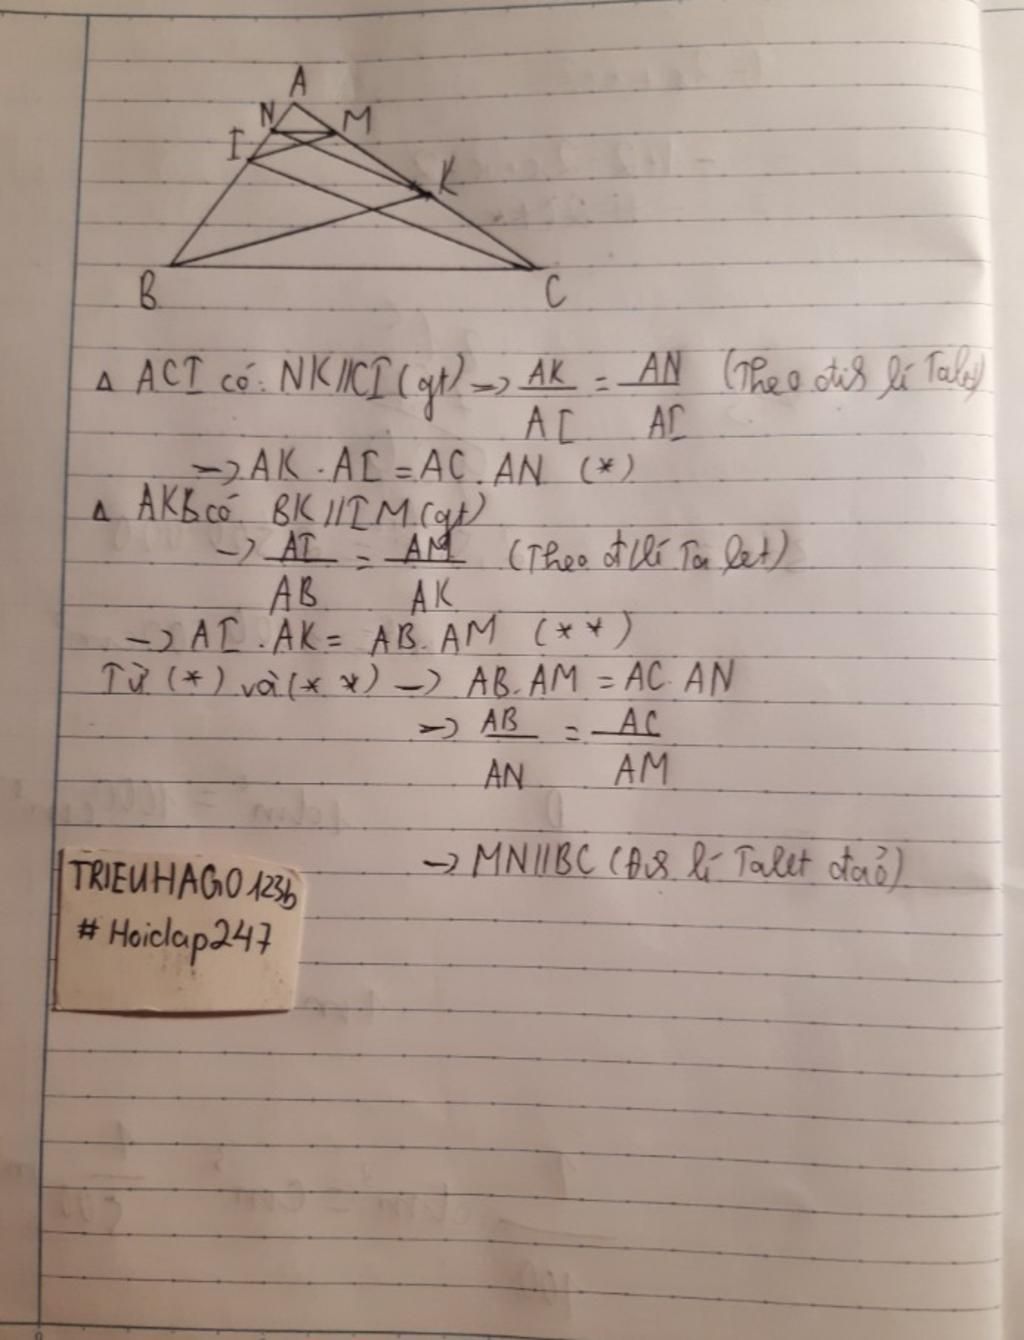 A
N M
I
K
B C
Δ ACI có: NK//CI (gt) → AK/AC = AN/AI (Theo định lí Talet)
→ AK . AI = AC . AN (*)
Δ AKB có BK//IM (gt)
→ AI/AB = AM/AK (Theo đ lí Ta let)
→ AI . AK = AB . AM (**)
Từ (*) và (**) → AB . AM = AC . AN
→ AB/AN = AC/AM
→ MN//BC (Định lí Talet đảo)
TRIEUHAGO123b
# Hoidap247